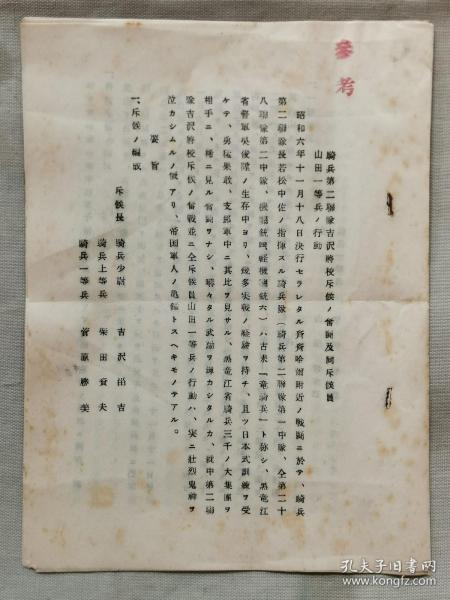 參考
騎兵第二聯隊吉沢將校斥候ノ奮鬪及同斥候員
山田一等兵ノ行動
昭和六年十一月十八日決行セラレタル齊齊哈爾附近ノ戰鬪ニ於テ、騎兵
第二聯隊長若松中佐ノ指揮スル騎兵隊（騎兵第二聯隊第一中隊、仝第二十
八聯隊第二中隊、機關銃四軽機關銃六）ハ古來「竜騎兵」ト称シ、黒竜江
省督軍吳俊陞ノ生存中ヨリ、幾多実戰ノ経驗ヲ持チ、且ツ日本式訓練ヲ受
ケテ、勇猛果敢、支那軍中ニ其比ヲ見サル、黒竜江省騎兵三千ノ大集團ヲ
相手ニ、稀ニ見ル奮鬪ヲナシ、嚇々タル武勲ヲ輝カシタルカ、就中第二聯
隊吉沢將校斥候ノ奮戰並ニ仝斥候員山田一等兵ノ行動ハ、実ニ壮烈鬼神ヲ
泣カシムルノ慨アリ、帝国軍人ノ亀鑑トスヘキモノテアル。
要旨
一、斥候ノ編成
斥候長 騎兵少尉 吉沢 吉
騎兵上等兵 柴田貢夫
騎兵一等兵 菅原勝美
孔夫子旧书网
www.kongfz.com